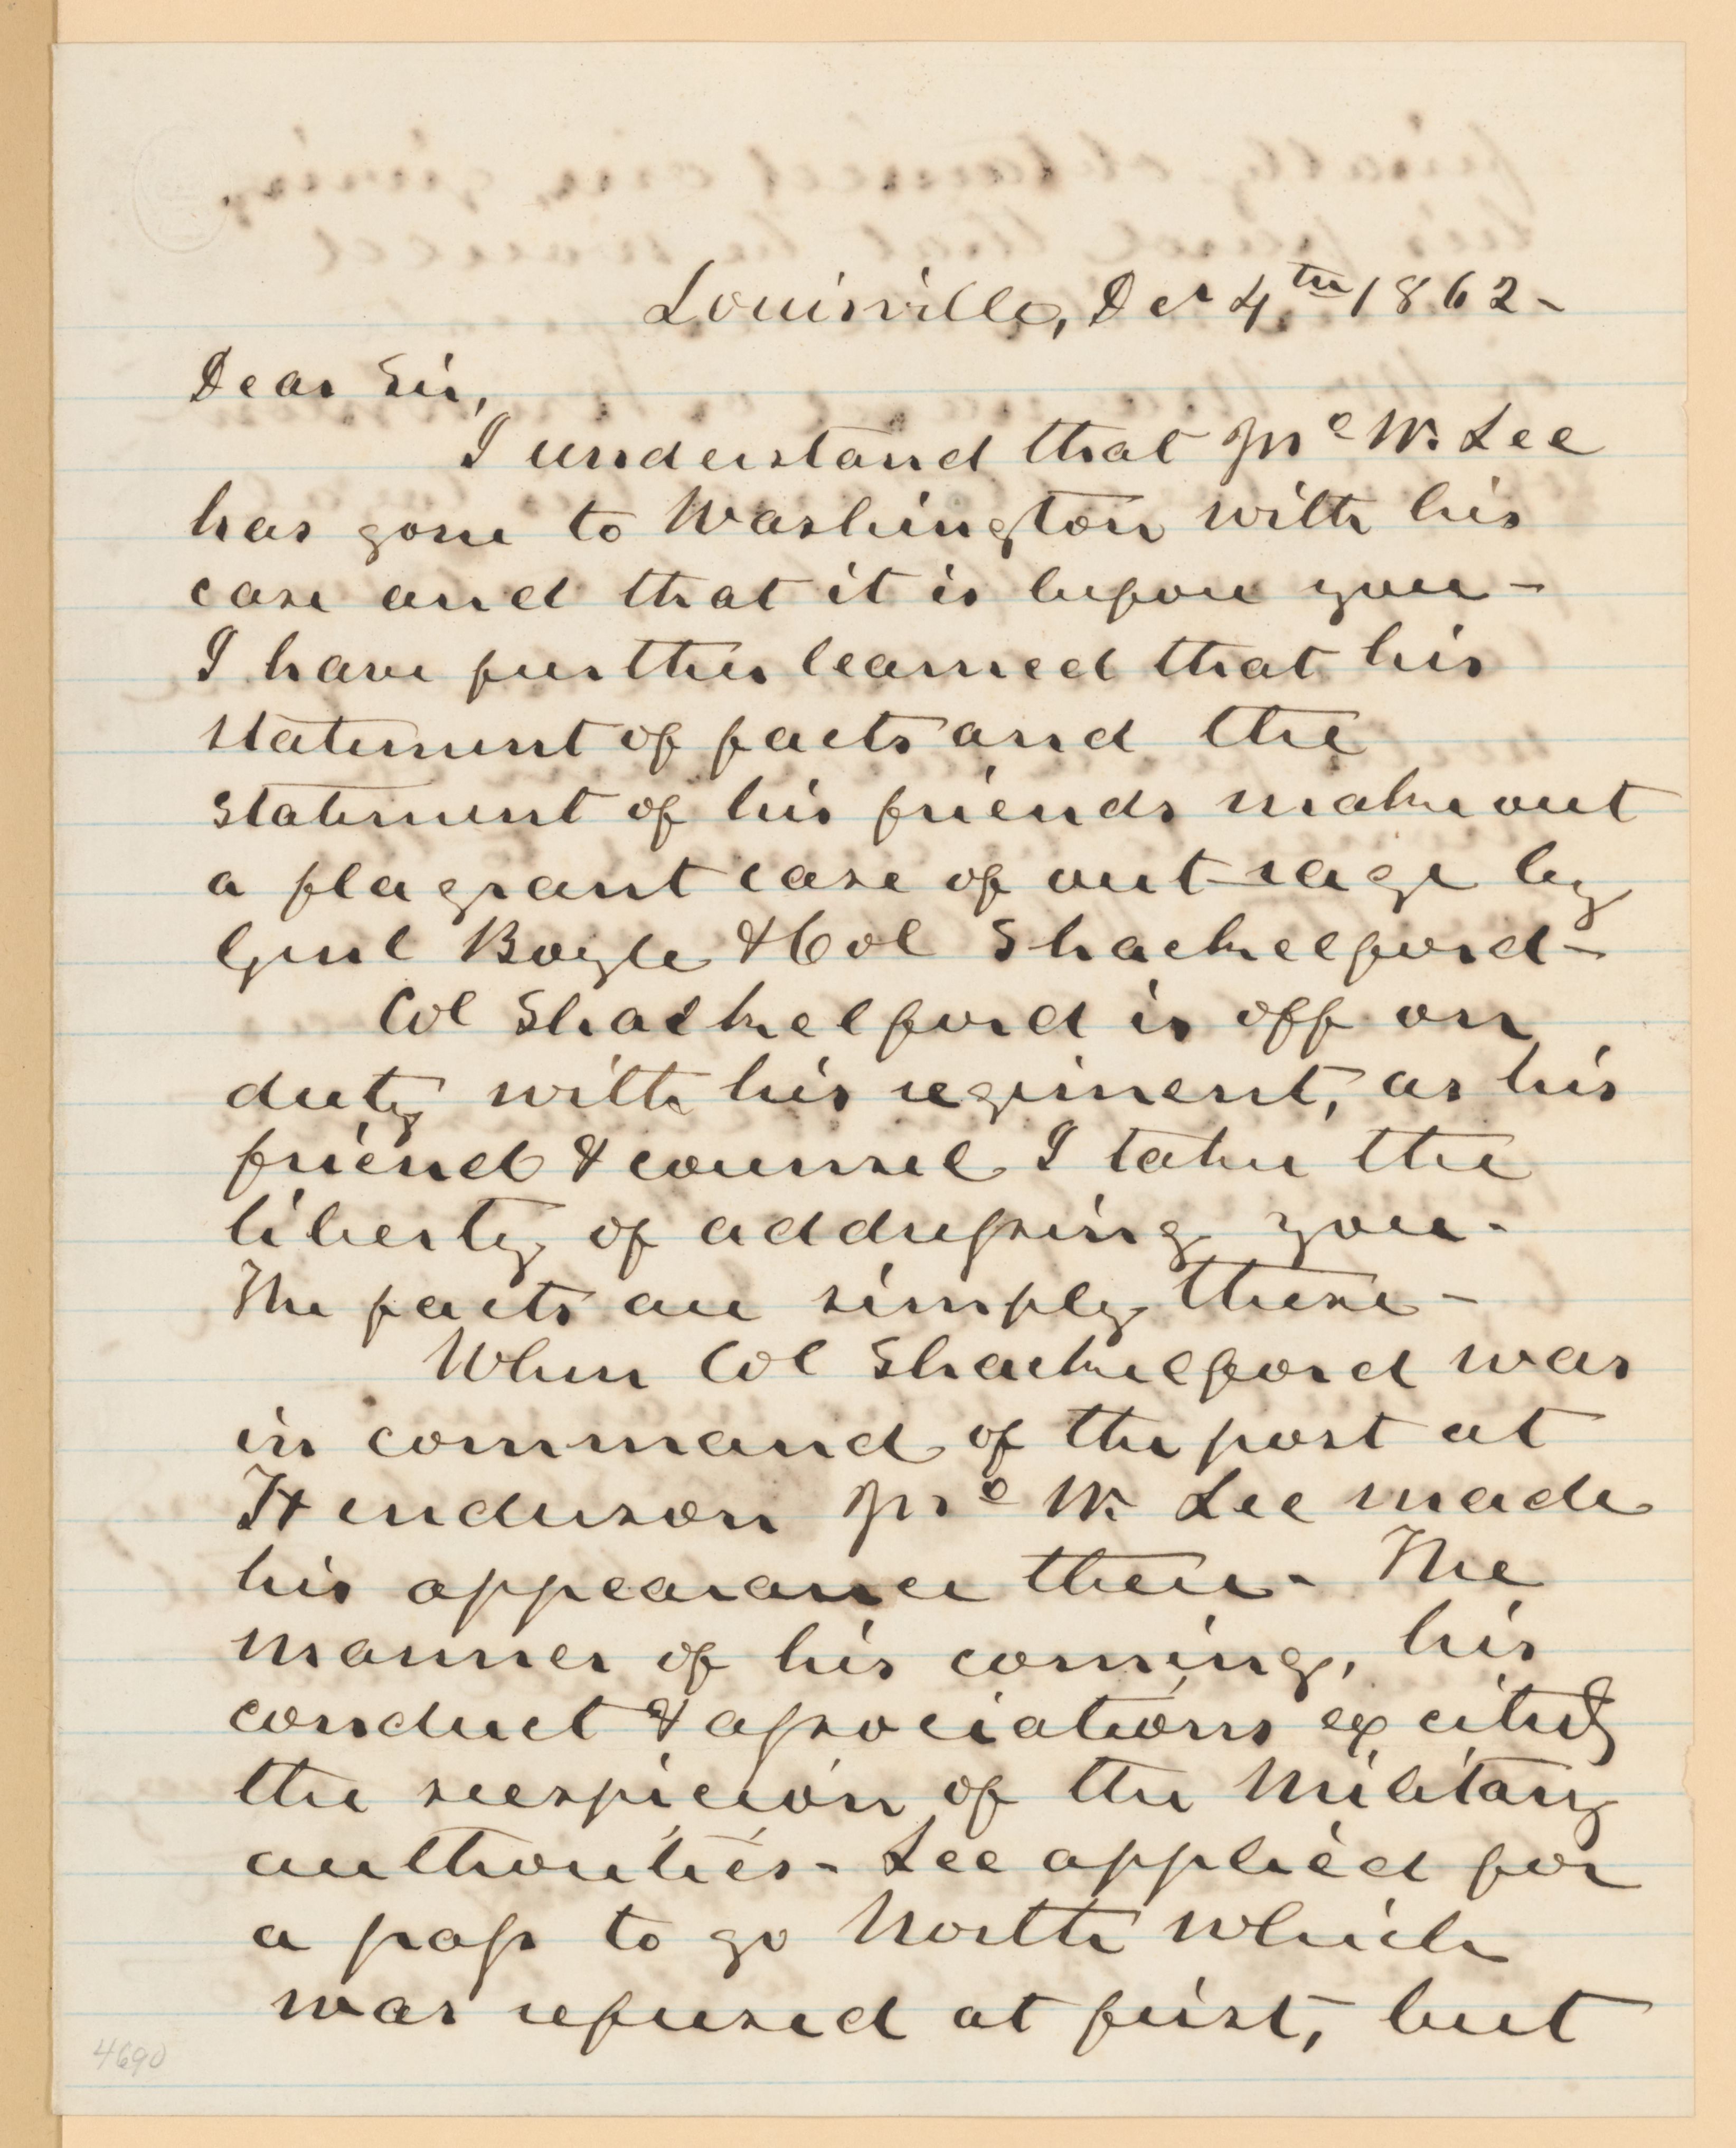 Louisville, Dec 4th 1862-
Dear Sir,
I understand that Mc W. Lee
has gone to Washington with his
case and that it is before you-
I have further learned that his
statement of facts and the
statement of his friends make out
a flagrant case of outrage by
Genl Boyle & Col Shackelford-
Col Shackelford is off on
duty with his regiment, as his
friend & counsel I take the
liberty of addressing you.
The facts are simply these-
When Col Shackelford was
in command of the post at
Henderson Mc W. Lee made
his appearance there- The
manner of his coming, his
conduct & associations excited
the suspicion of the Military
authorities- Lee applied for
a pass to go North which
was refused at first, but
4690